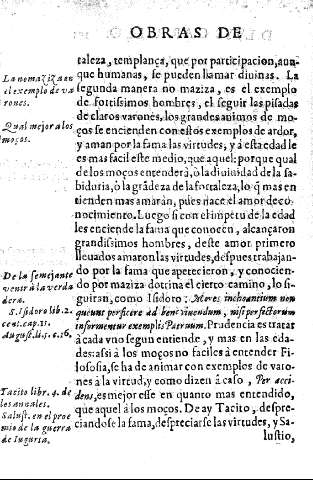 OBRAS DE
taleza, templança, que por participacion, aun-
que humanas, se pueden llamar diuinas. La
segunda manera no maziza, es el exemplo
de fortissimos hombres, el seguir las pisadas
de claros varones, los grandes animos de mo-
ços se encienden con estos exemplos de ardor,
y aman por la fama las virtudes, y a esta edad le
es mas facil este medio, que aquel: porque qual
de los moços entenderà, ò la diuinidad de la sa-
biduria, ò la grãdeza de la fortaleza, lo q̃ mas en
tienden mas amaràn, pues nace el amor de co-
nocimiento. Luego si con el impetu de la edad
les enciende la fama que conocen, alcançaron
grandissimos hombres, deste amor primero
lleuados amaron las virtudes, despues trabajan-
do por la fama que apetecieron, y conocien-
do por maziza dotrina el cierto camino, lo si-
guiran, como Isidoro: Mores inchoantium non
queunt perficere ad bene viuendum, nisi perfectorum
informentur exemplis Patrum. Prudencia es tratar
à cada vno segun entiende, y mas en las eda-
des: assi à los moços no faciles à entender Fi-
losofia, se ha de animar con exemplos de varo-
nes à la virtud, y como dizen à caso, Per acci-
dens, es mejor esse en quanto mas entendido,
que aquel à los moços. De ay Tacito, despre-
ciandose la fama, despreciarse las virtudes, y Sa-
lustio,
La no maziza en
el exemplo de va
rones.
Qual mejor a los
moços.
De la semejante
venir à la verda
dera.
S. Isidoro lib. 2.
cent. cap. 11.
August. li. 5. c. 16.
Tacito libr. 4. de
los annales.
Salust. en el proe
mio de la guerra
de Iugursa.